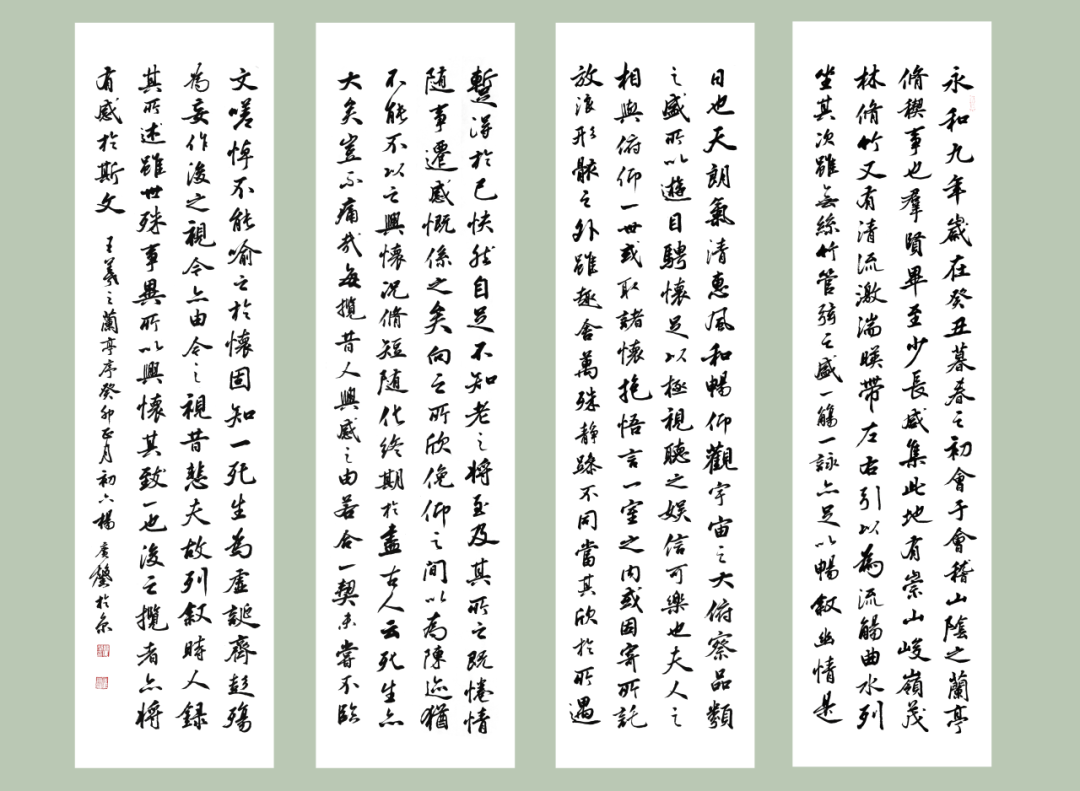 永和九年歲在癸丑暮春之初會于會稽山陰之蘭亭
脩稧事也羣賢畢至少長咸集此地有崇山峻嶺茂
林脩竹又有清流激湍暎帶左右引以為流觴曲水列
坐其次雖無絲竹管弦之盛一觴一詠亦足以暢敘幽情是
日也天朗氣清惠風和暢仰觀宇宙之大俯察品類
之盛所以遊目騁懷足以極視聽之娛信可樂也夫人之
相與俯仰一世或取諸懷抱悟言一室之内或因寄所託
放浪形骸之外雖趣舍萬殊静躁不同當其欣於所遇
暫得於己怏然自足不知老之將至及其所之既惓情
隨事遷感慨係之矣向之所欣俛仰之間以為陳迹猶
不能不以之興懷況脩短隨化終期於盡古人云死生亦
大矣豈不痛哉每攬昔人興感之由若合一契未嘗不臨
文嗟悼不能喻之於懷固知一死生為虛誕齊彭殤
為妄作後之視今亦由今之視昔悲夫故列敘時人錄
其所述雖世殊事異所以興懷其致一也後之攬者亦將
有感於斯文 王羲之蘭亭序癸卯正月初六楊廣馨於京